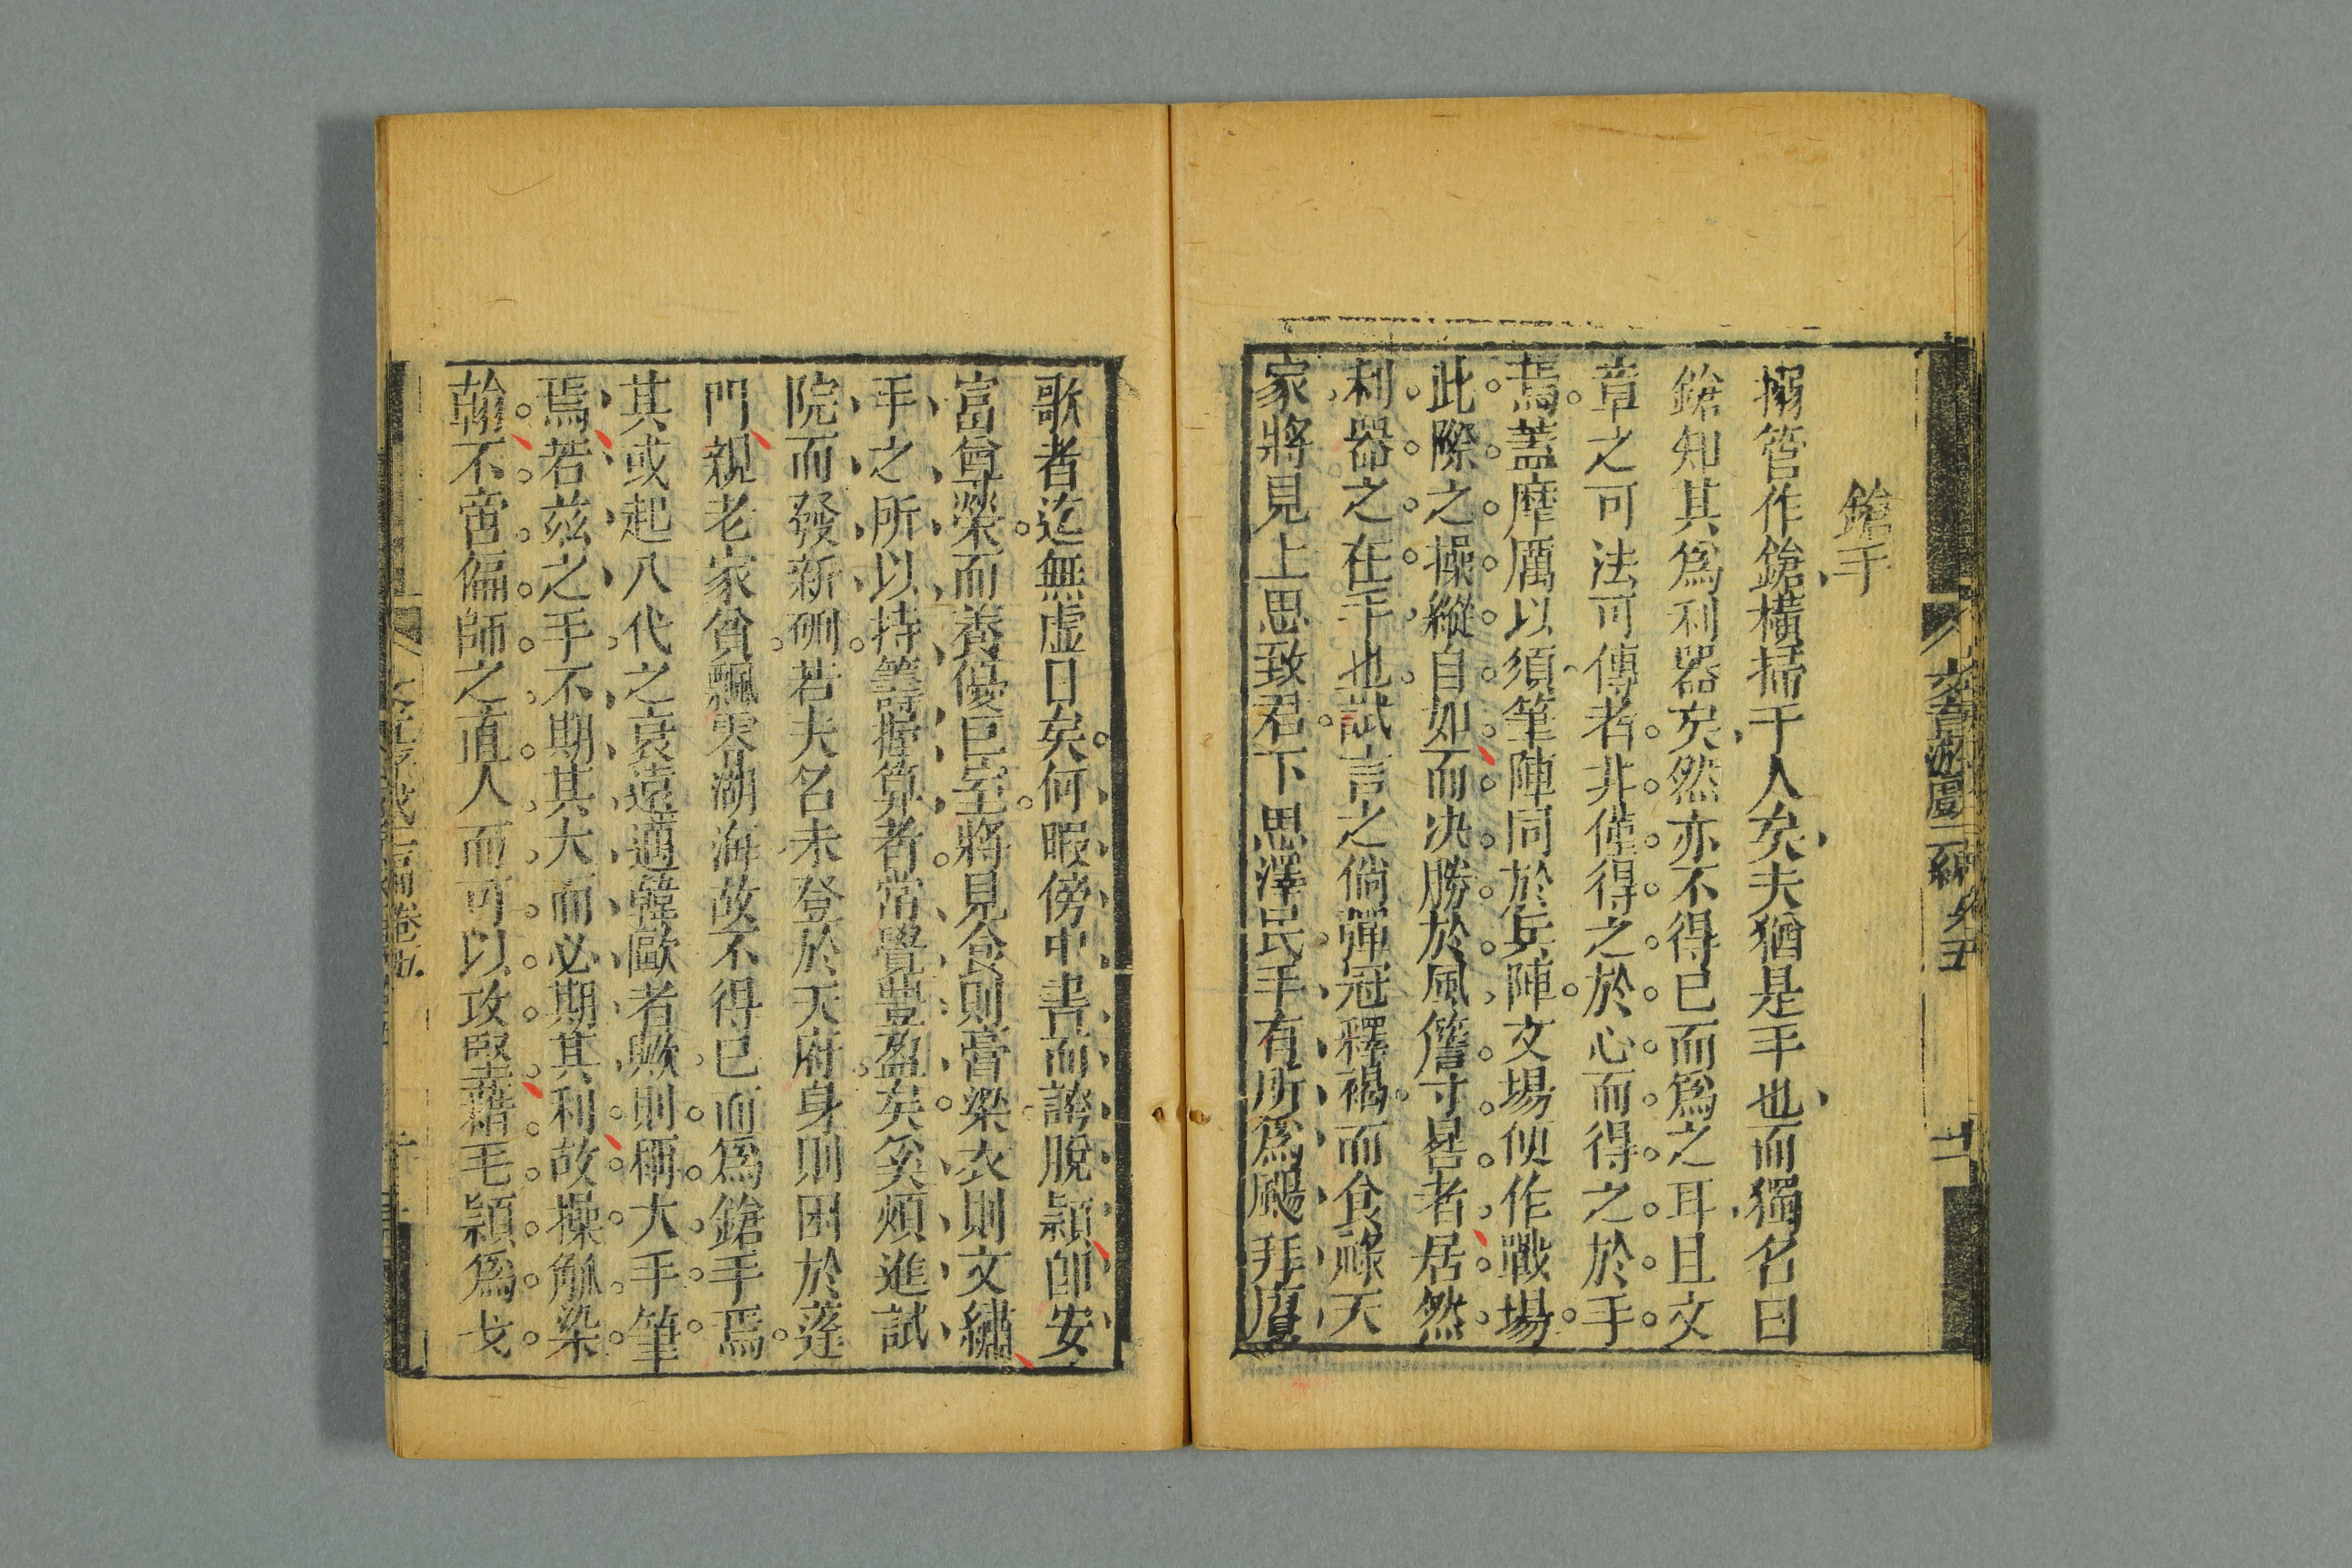 鎗手
搦管作鎗橫掃千人矣夫猶是手也而獨名曰
鎗知其爲利器矣然亦不得已而爲之耳且文
章之可法可傳者非僅得之於心而得之於手
焉蓋摩厲以須筆陣同於兵陣文場便作戰場
此際之操縱自如而决勝於風簷寸晷者居然
利器之在手也試言之倘彈冠釋褐而食祿天
家將見上思致君下思澤民手有所爲颺拜賡
歌者迄無虚日矣何暇傍中書而誇脫頴卽安
富尊榮而養優巨室將見食則膏粱衣則文繡
手之所以持籌握算者常覺豐盈矣奚煩進試
院而發新硎若夫名未登於天府身則困於蓬
門親老家貧飄零湖海故不得已而爲鎗手焉
其或起八代之衰遠適韓歐者歟則稱大手筆
焉若茲之手不期其大而必期其利故操觚染
翰不啻偏師之直人而可以攻堅藉毛頴爲戈
文章游戲二編 卷五